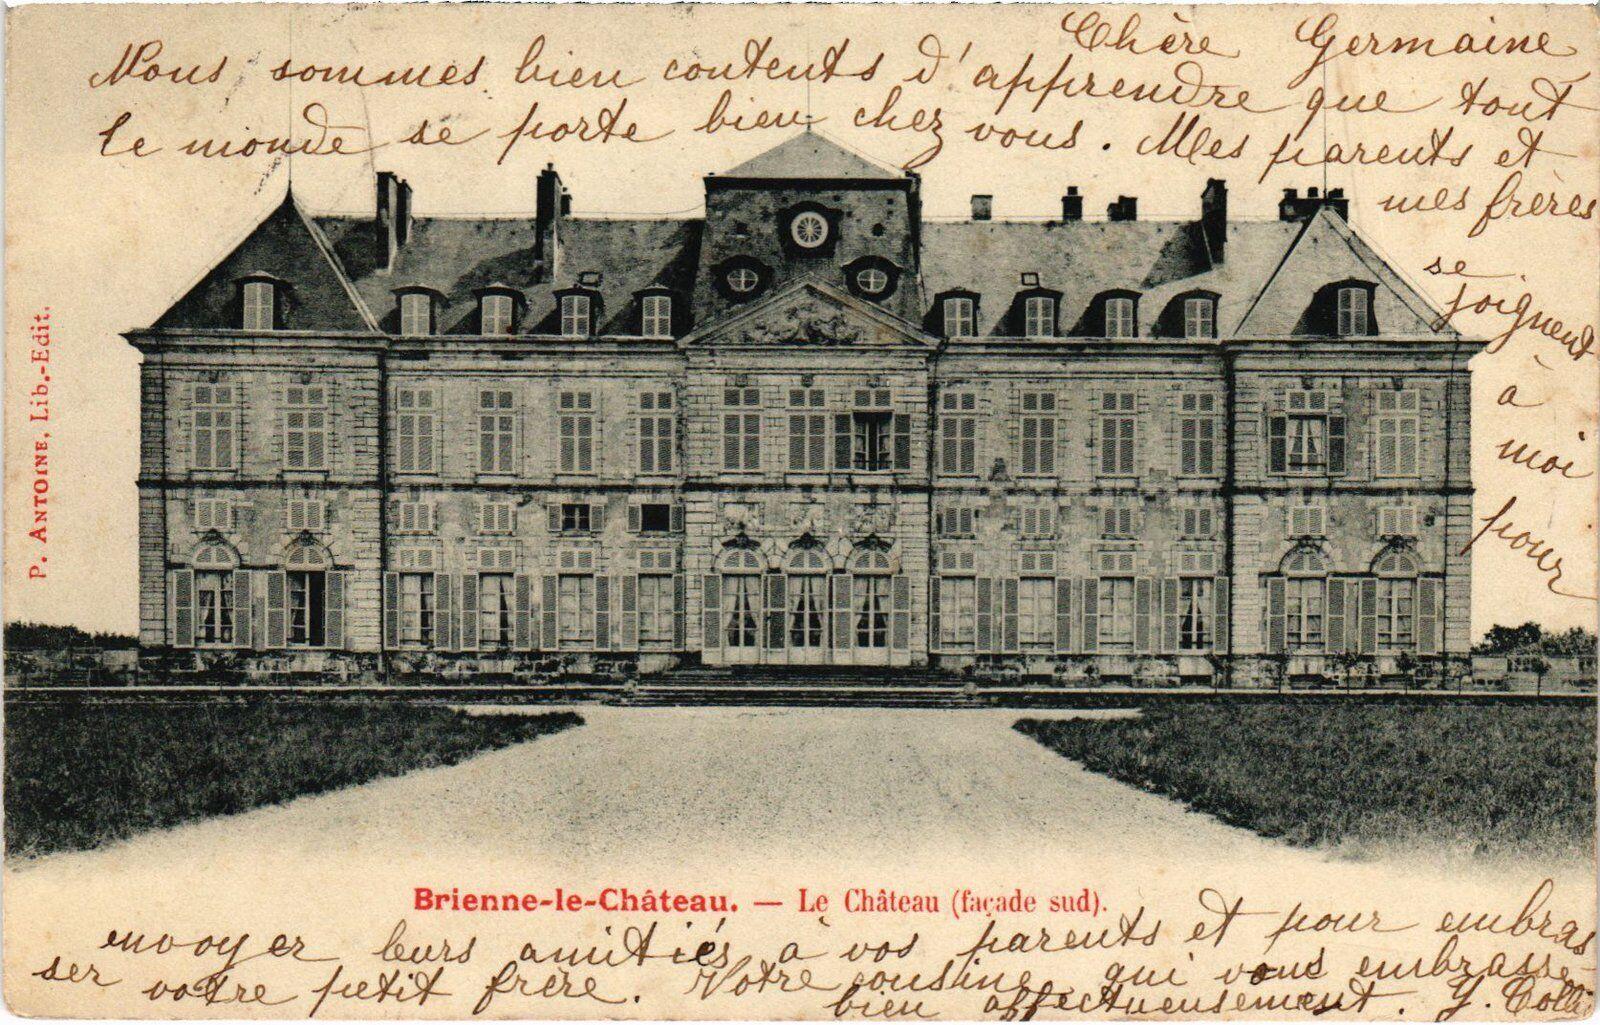 Chère Germaine,
Nous sommes bien contents d'apprendre que tout
le monde se porte bien chez vous. Mes parents et
mes frères
se
joignent
à
moi
pour
P. ANTOINE, Lib.-Edit.
Brienne-le-Château. — Le Château (façade sud).
envoyer leurs amitiés à vos parents et pour embras
ser votre petit frère. Votre cousine qui vous embrasse
bien affectueusement. Y.